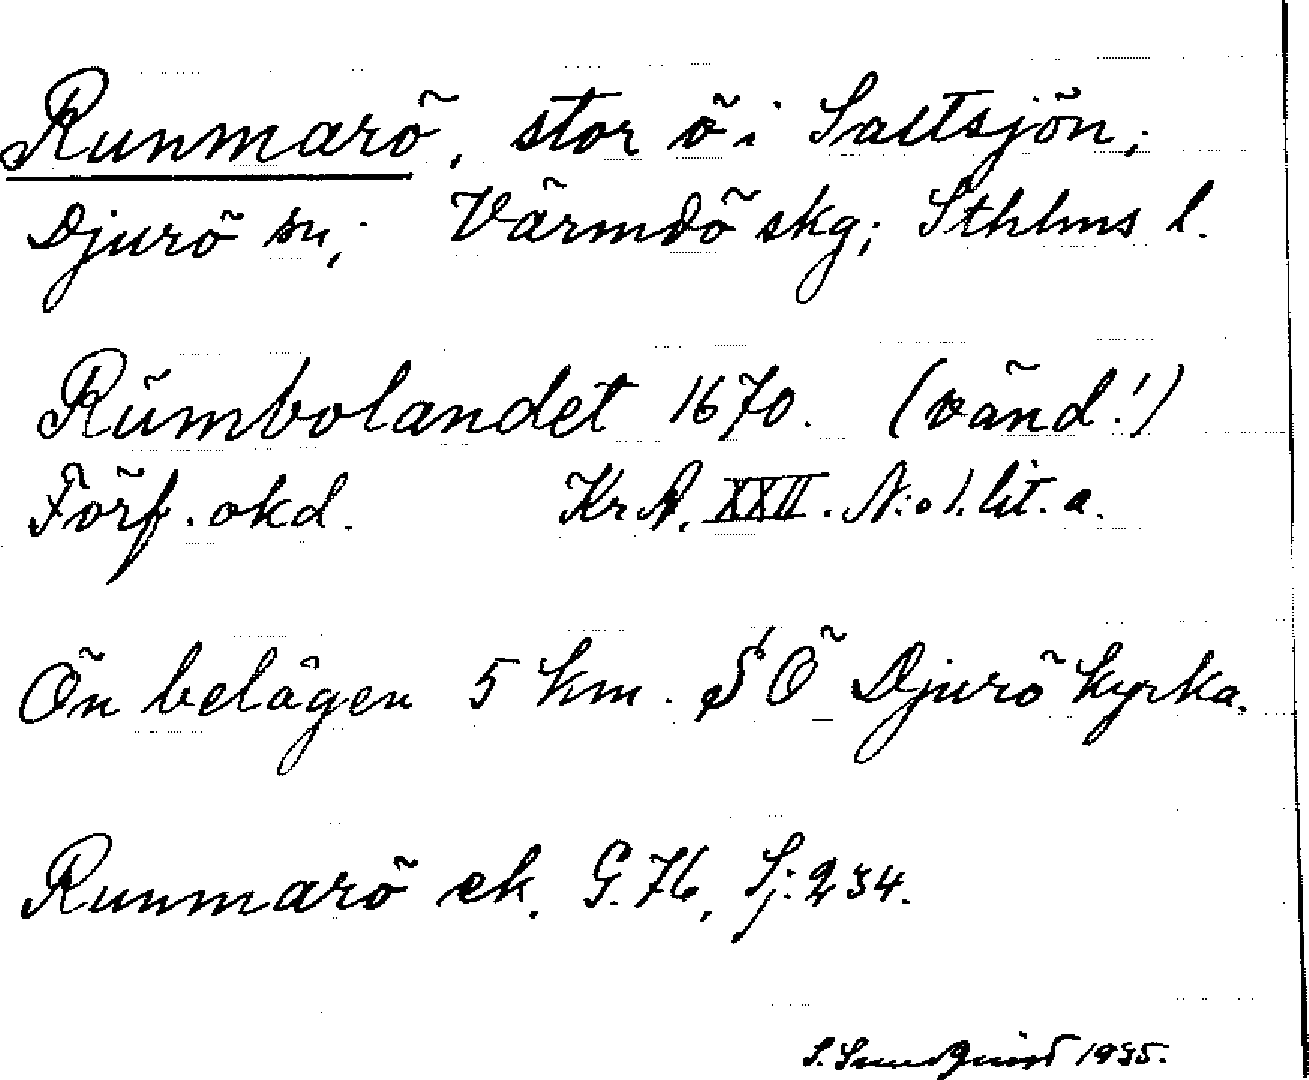 Runmarö, stor ö i Saltsjön;
Djurö sn; Värmdö skg; Sthlms l.
Rümbolandet 1670. (vänd!)
Förf. okd. Kr A. XXII. N:o 1. lit. a.
Ön belägen 5 km. SÖ Djurö kyrka.
Runmarö ek. G. 76, Sj: 234.
S. Sundquist 1935.